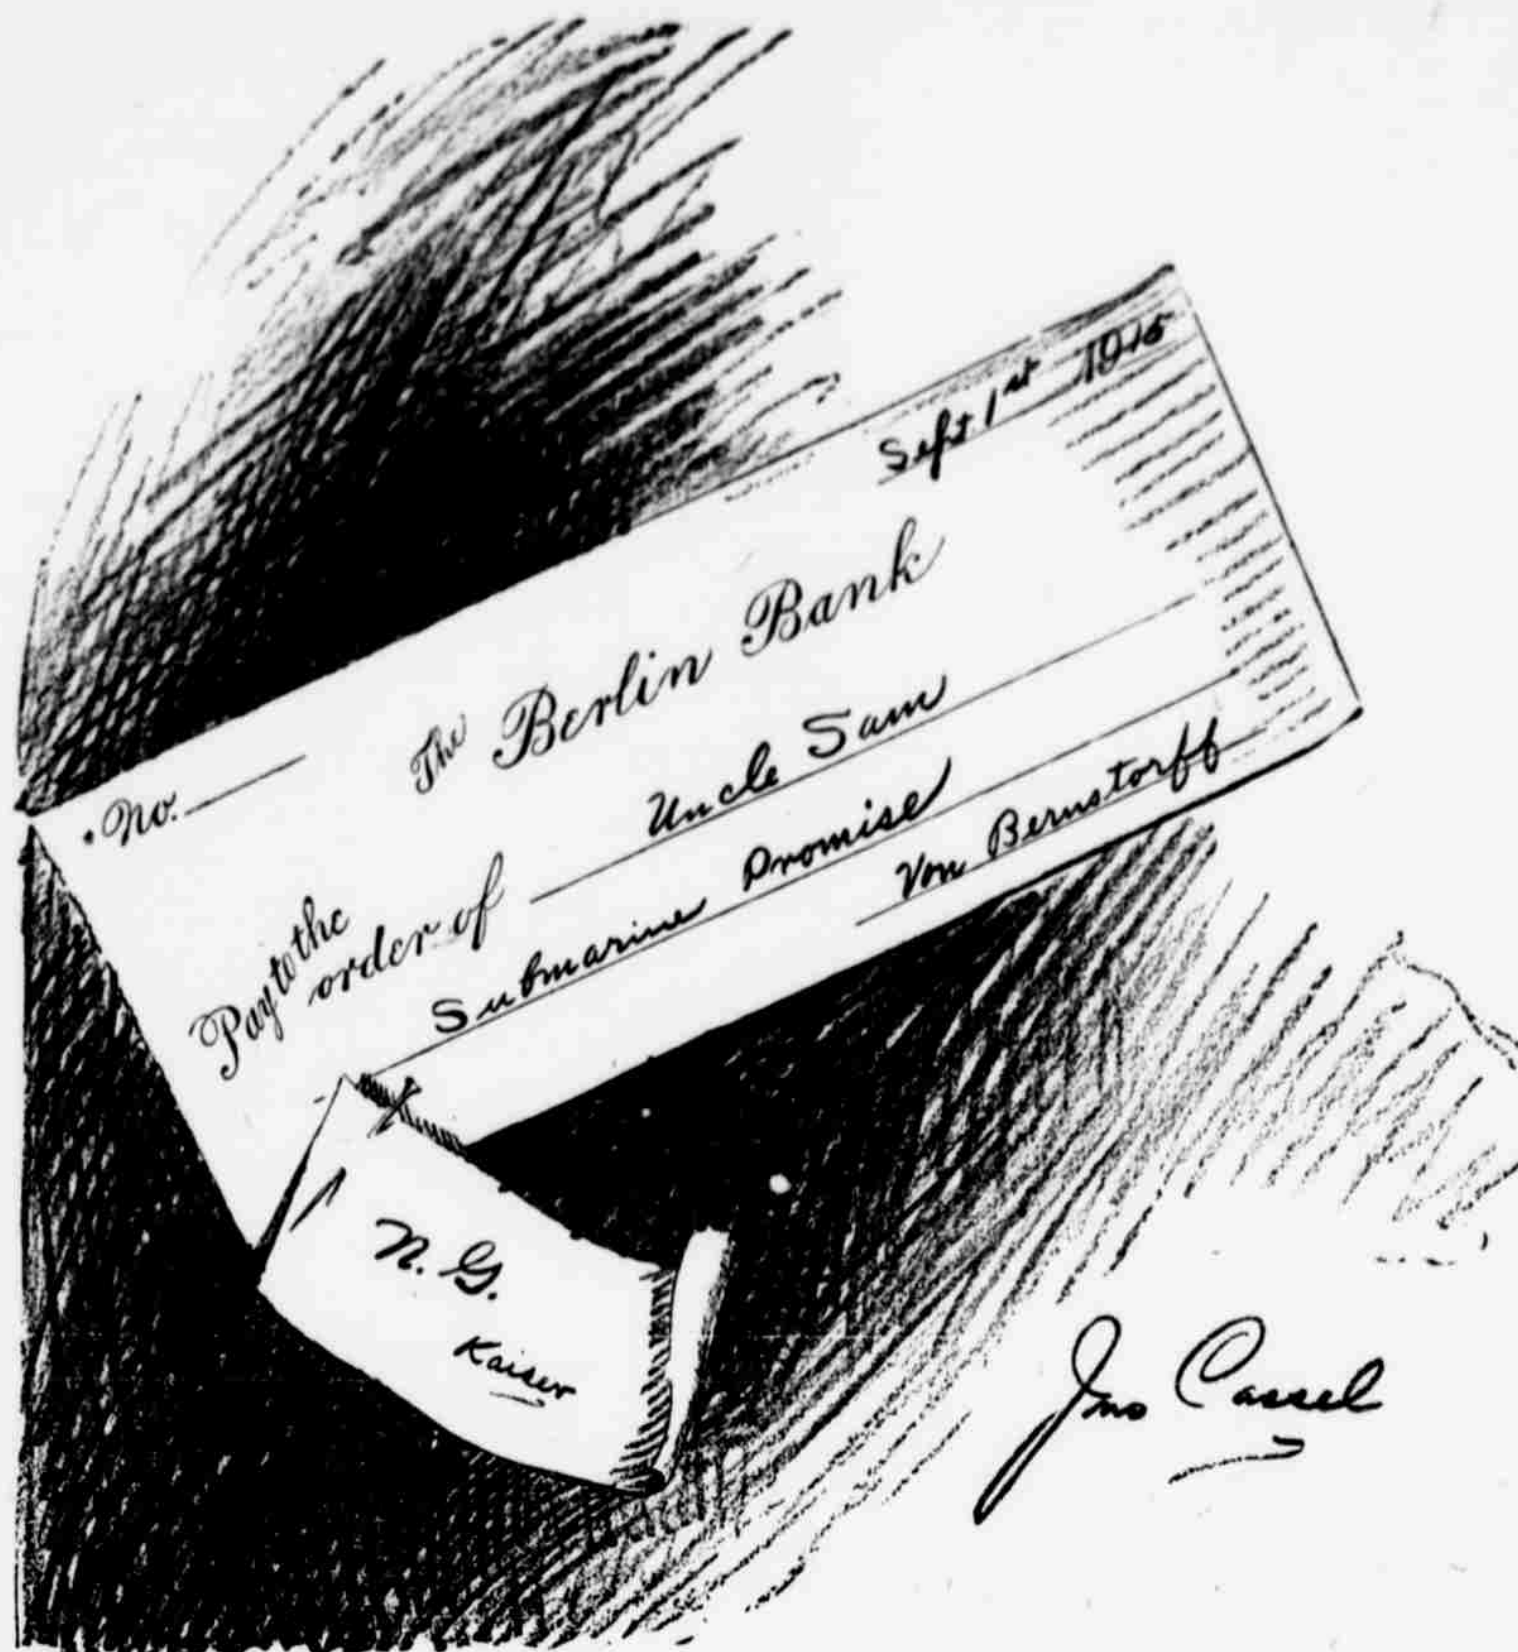 Sept 1st 1915
No.
The Berlin Bank
Pay to the
order of Uncle Sam
Submarine Promise
Von Bernstorff
N. G.
Kaiser
Jno Cassel